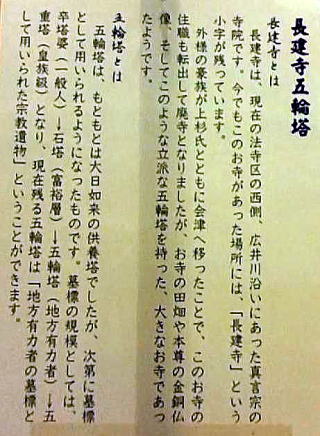 長建寺五輪塔
長建寺とは
長建寺は、現在の法寺区の西側、広井川沿いにあった真言宗の
寺院です。今でもこのお寺があった場所には、「長建寺」という
小字が残っています。
外様の豪族が上杉氏とともに会津へ移ったことで、このお寺の
住職も転出して廃寺となりましたが、お寺の田畑や本尊の金銅仏
像、そしてこのような立派な五輪塔を持った、大きなお寺であっ
たようです。
五輪塔とは
五輪塔は、もともとは大日如来の供養塔でしたが、次第に墓標
として用いられるようになったものです。墓標の規模としては、
卒塔婆（一般人）→石塔（富裕層）→五輪塔（地方有力者）→五
重塔（皇族級）となり、現在残る五輪塔は「地方有力者の墓標と
して用いられた宗教遺物」ということができます。